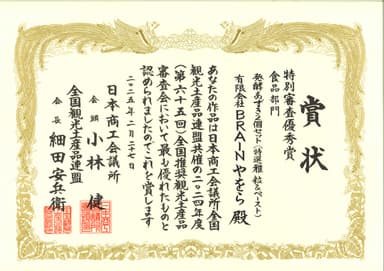 賞状
特別審査優秀賞
食品部門
発酵あずき2個セット(特選雅 粒&ペースト)
有限会社BRAINやをら 殿
あなたの作品は日本商工会議所全国
観光土産品連盟共催の二〇二四年度
(第六十五回)全国推奨観光土産品
審査会において最も優れたものと
認められましたのでこれを賞します
二〇二五年二月二十七日
日本商工会議所
会頭 小林 健
全国観光土産品連盟
会長 細田安兵衛